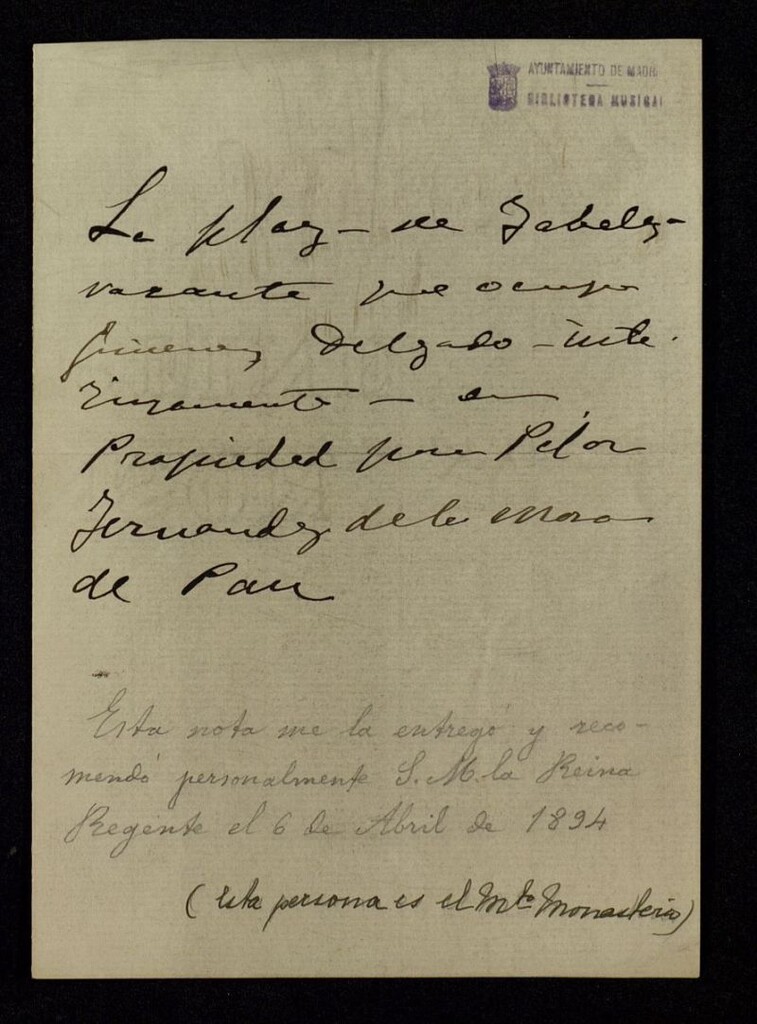 AYUNTAMIENTO DE MADRI
BIBLIOTECA MUSICAL
La plaz- de Zabalz-
vacante que ocupa
Jimenez Delgado - inte.
rinamente - en
Propiedad para Pilar
Fernandez de la Mora
de Pau
Esta nota me la entregó y reco-
mendó personalmente S. M. la Reina
Regente el 6 de Abril de 1894
(esta persona es el Mto Monasterio)